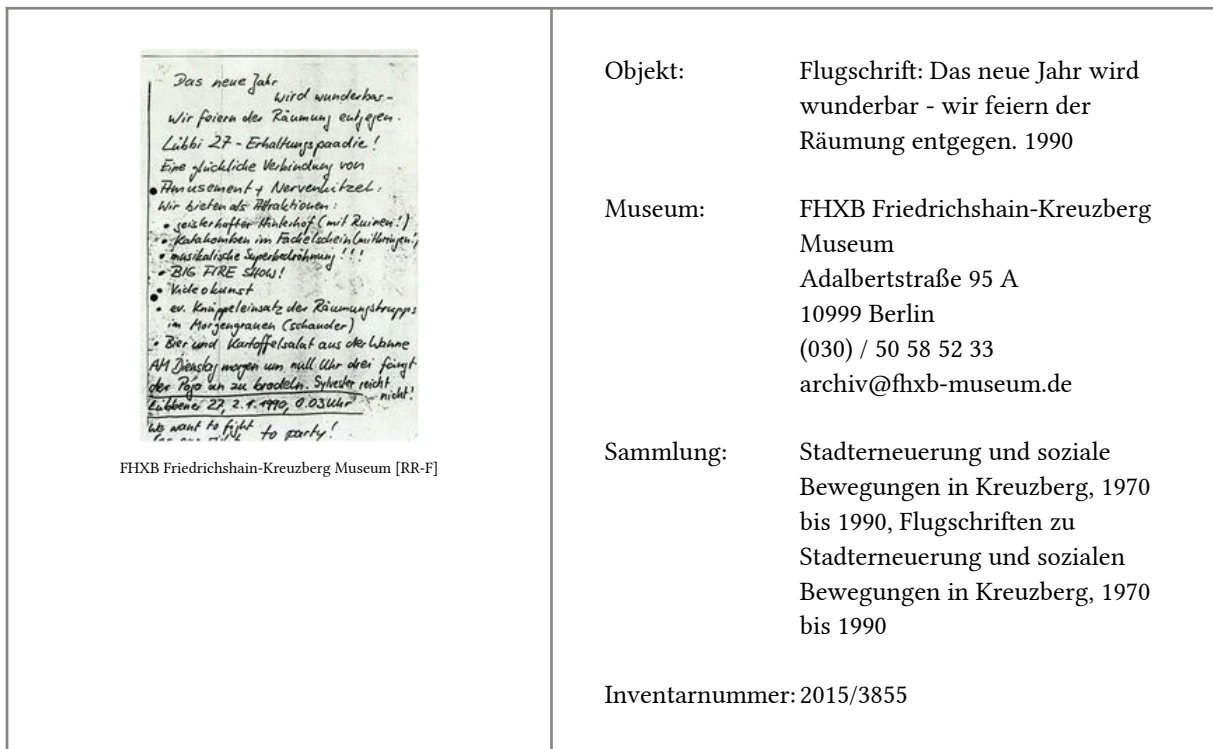 Das neue Jahr
wird wunderbar -
wir feiern der Räumung entgegen.
Lübbi 27 - Erhaltungspaadie!
Eine glückliche Verbindung von
Amusement + Nervenkitzel:
Wir bieten als Attraktionen:
• geisterhafter Hinterhof (mit Ruinen!)
• Katakomben im Fackelschein (mitbringen!)
• musikalische Superbedröhnung!!!
• BIG FIRE SHOW!
• Videokunst
• ev. Knüppeleinsatz der Räumungstrupps
im Morgengrauen (schauder)
• Bier und Kartoffelsalat aus der Wanne
AM Dienstag morgen um null Uhr drei fängt
der Pojo an zu brodeln. Sylvester reicht
nicht!
Lübbener 27, 2.1.1990, 0.03 Uhr
we want to fight
to party!
FHXB Friedrichshain-Kreuzberg Museum [RR-F]
Objekt: Flugschrift: Das neue Jahr wird
wunderbar - wir feiern der
Räumung entgegen. 1990
Museum: FHXB Friedrichshain-Kreuzberg
Museum
Adalbertstraße 95 A
10999 Berlin
(030) / 50 58 52 33
archiv@fhxb-museum.de
Sammlung: Stadterneuerung und soziale
Bewegungen in Kreuzberg, 1970
bis 1990, Flugschriften zu
Stadterneuerung und sozialen
Bewegungen in Kreuzberg, 1970
bis 1990
Inventarnummer: 2015/3855